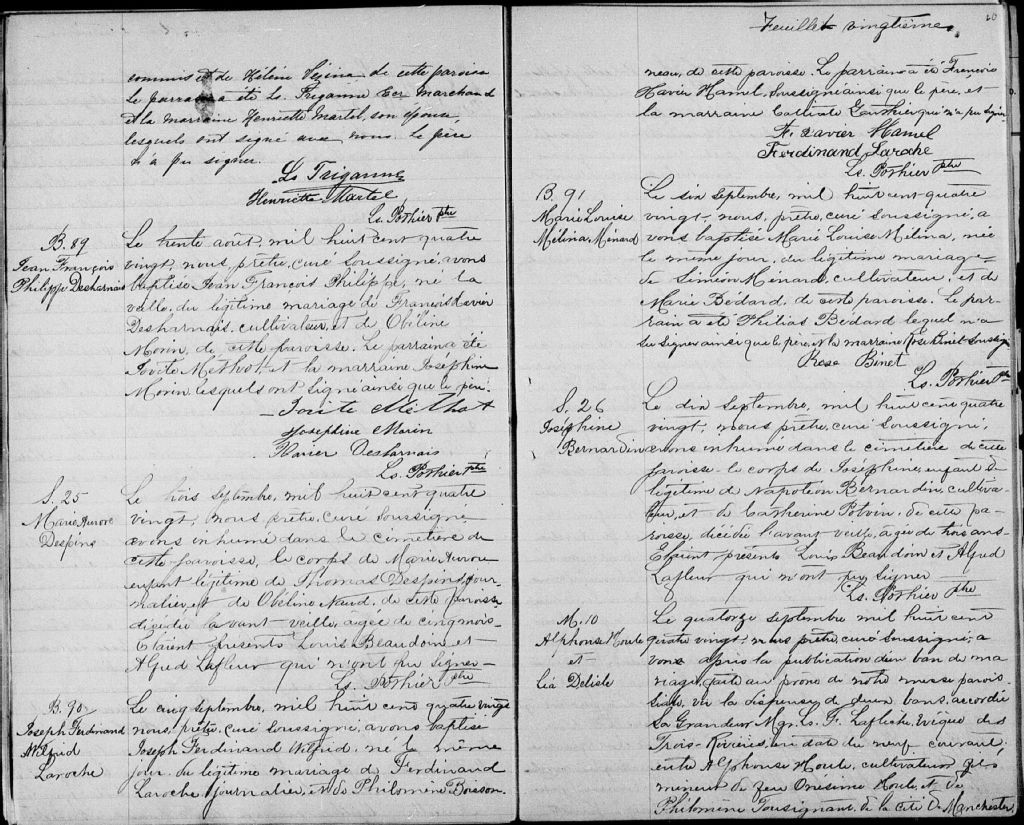 commis et de Hélène Vézina de cette paroisse
Le parrain a été Ls. Triganne Ecr marchand
et la marraine Henriette Martel, son épouse,
lesquels ont signé avec nous. Le père
n'a pu signer.
Ls Triganne
Henriette Martel
Ls. Pothier ptre
B. 89
Jean François
Philippe Desharnais
Le trente août, mil huit cent quatre
vingt, nous, prêtre, curé soussigné, avons
baptisé Jean François Philippe, né la
veille, du légitime mariage de François Xavier
Desharnais, cultivateur, et de Obéline
Morin, de cette paroisse. Le parrain a été
Jovite Méthot et la marraine Joséphine
Morin lesquels ont signé ainsi que le père.
Jovite Méthot
Josephine Morin
Xavier Desharnais
Ls. Pothier ptre
S. 25
Marie Aurore
Despins
Le trois septembre, mil huit cent quatre
vingt, nous prêtre, curé soussigné
avons inhumé dans le cimetière de
cette paroisse, le corps de Marie Aurore
enfant légitime de Thomas Despins, jour
nalier, et de Obéline Naud, de cette paroisse
décédée l'avant-veille, agée de cinq mois
Etaient présents Louis Beaudoin et
Alfred Lafleur qui n'ont pu signer
Ls. Pothier ptre
B. 90
Joseph Ferdinand
Wilfrid
Laroche
Le cinq septembre, mil huit cent quatre vingt
nous, prêtre, curé soussigné, avons baptisé
Joseph Ferdinand Wilfrid, né le même
jour, du légitime mariage de Ferdinand
Laroche journalier, et de Philomène Boisson-
20
Feuillet vingtième
neau, de cette paroisse. Le parrain a été François
Xavier Hamel, soussigné ainsi que le père, et
la marraine Gauthier qui n'a pu signer
F. Xavier Hamel
Ferdinand Laroche
Ls. Pothier ptre
B. 91
Marie Louise
Mélina, Ménard
Le six septembre, mil huit cent quatre
vingt, nous, prêtre, curé soussigné, a
vons baptisé Marie Louise Mélina, née
le même jour, du légitime mariage
de Siméon Ménard, cultivateur, et de
Marie Bédard, de cette paroisse. Le par-
rain a été Philias Bédard lequel n'a
su signer ainsi que le père, et la marraine Rose Binet soussig.
Rose Binet
Ls. Pothier Ptre
S. 26
Joséphine
Bernardin
Le dix septembre, mil huit cent quatre
vingt, nous, prêtre, curé soussigné,
avons inhumé dans le cimetière de cette
paroisse le corps de Joséphine, enfant
légitime de Napoléon Bernardin, cultiva-
teur, et de Catherine Potvin, de cette pa-
roisse, décédée l'avant veille, agée de trois ans
Etaient présents Louis Beaudoin et Alfred
Lafleur qui n'ont pu signer
Ls. Pothier ptre
M. 10
Alphonse Houle
et
Léa Delisle
Le quatorze septembre mil huit cent
quatre vingt, nous prêtre, curé soussigné, a
vons après la publication d'un ban de ma
riage, faite au prône de notre messe parois-
siale, vu la dispense de deux bans, accordée
Sa Grandeur Mgr. Ls. F. Laflèche, évêque des
Trois-Rivières, en date du neuf courant
entre Alphonse Houle, cultivateur, fils
mineur de feu Onésime Houle, et de
Philomène Tousignant, de la cité de Manchester